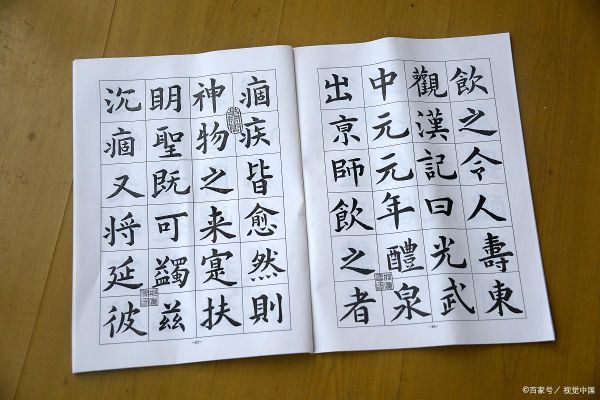 飲之令人壽東
觀漢記曰光武
中元元年醴泉
出亰師飲之者
痼疾皆愈然則
神物之来寔扶
眀聖既可蠲茲
沉痼又将延彼
©百家号／视觉中国